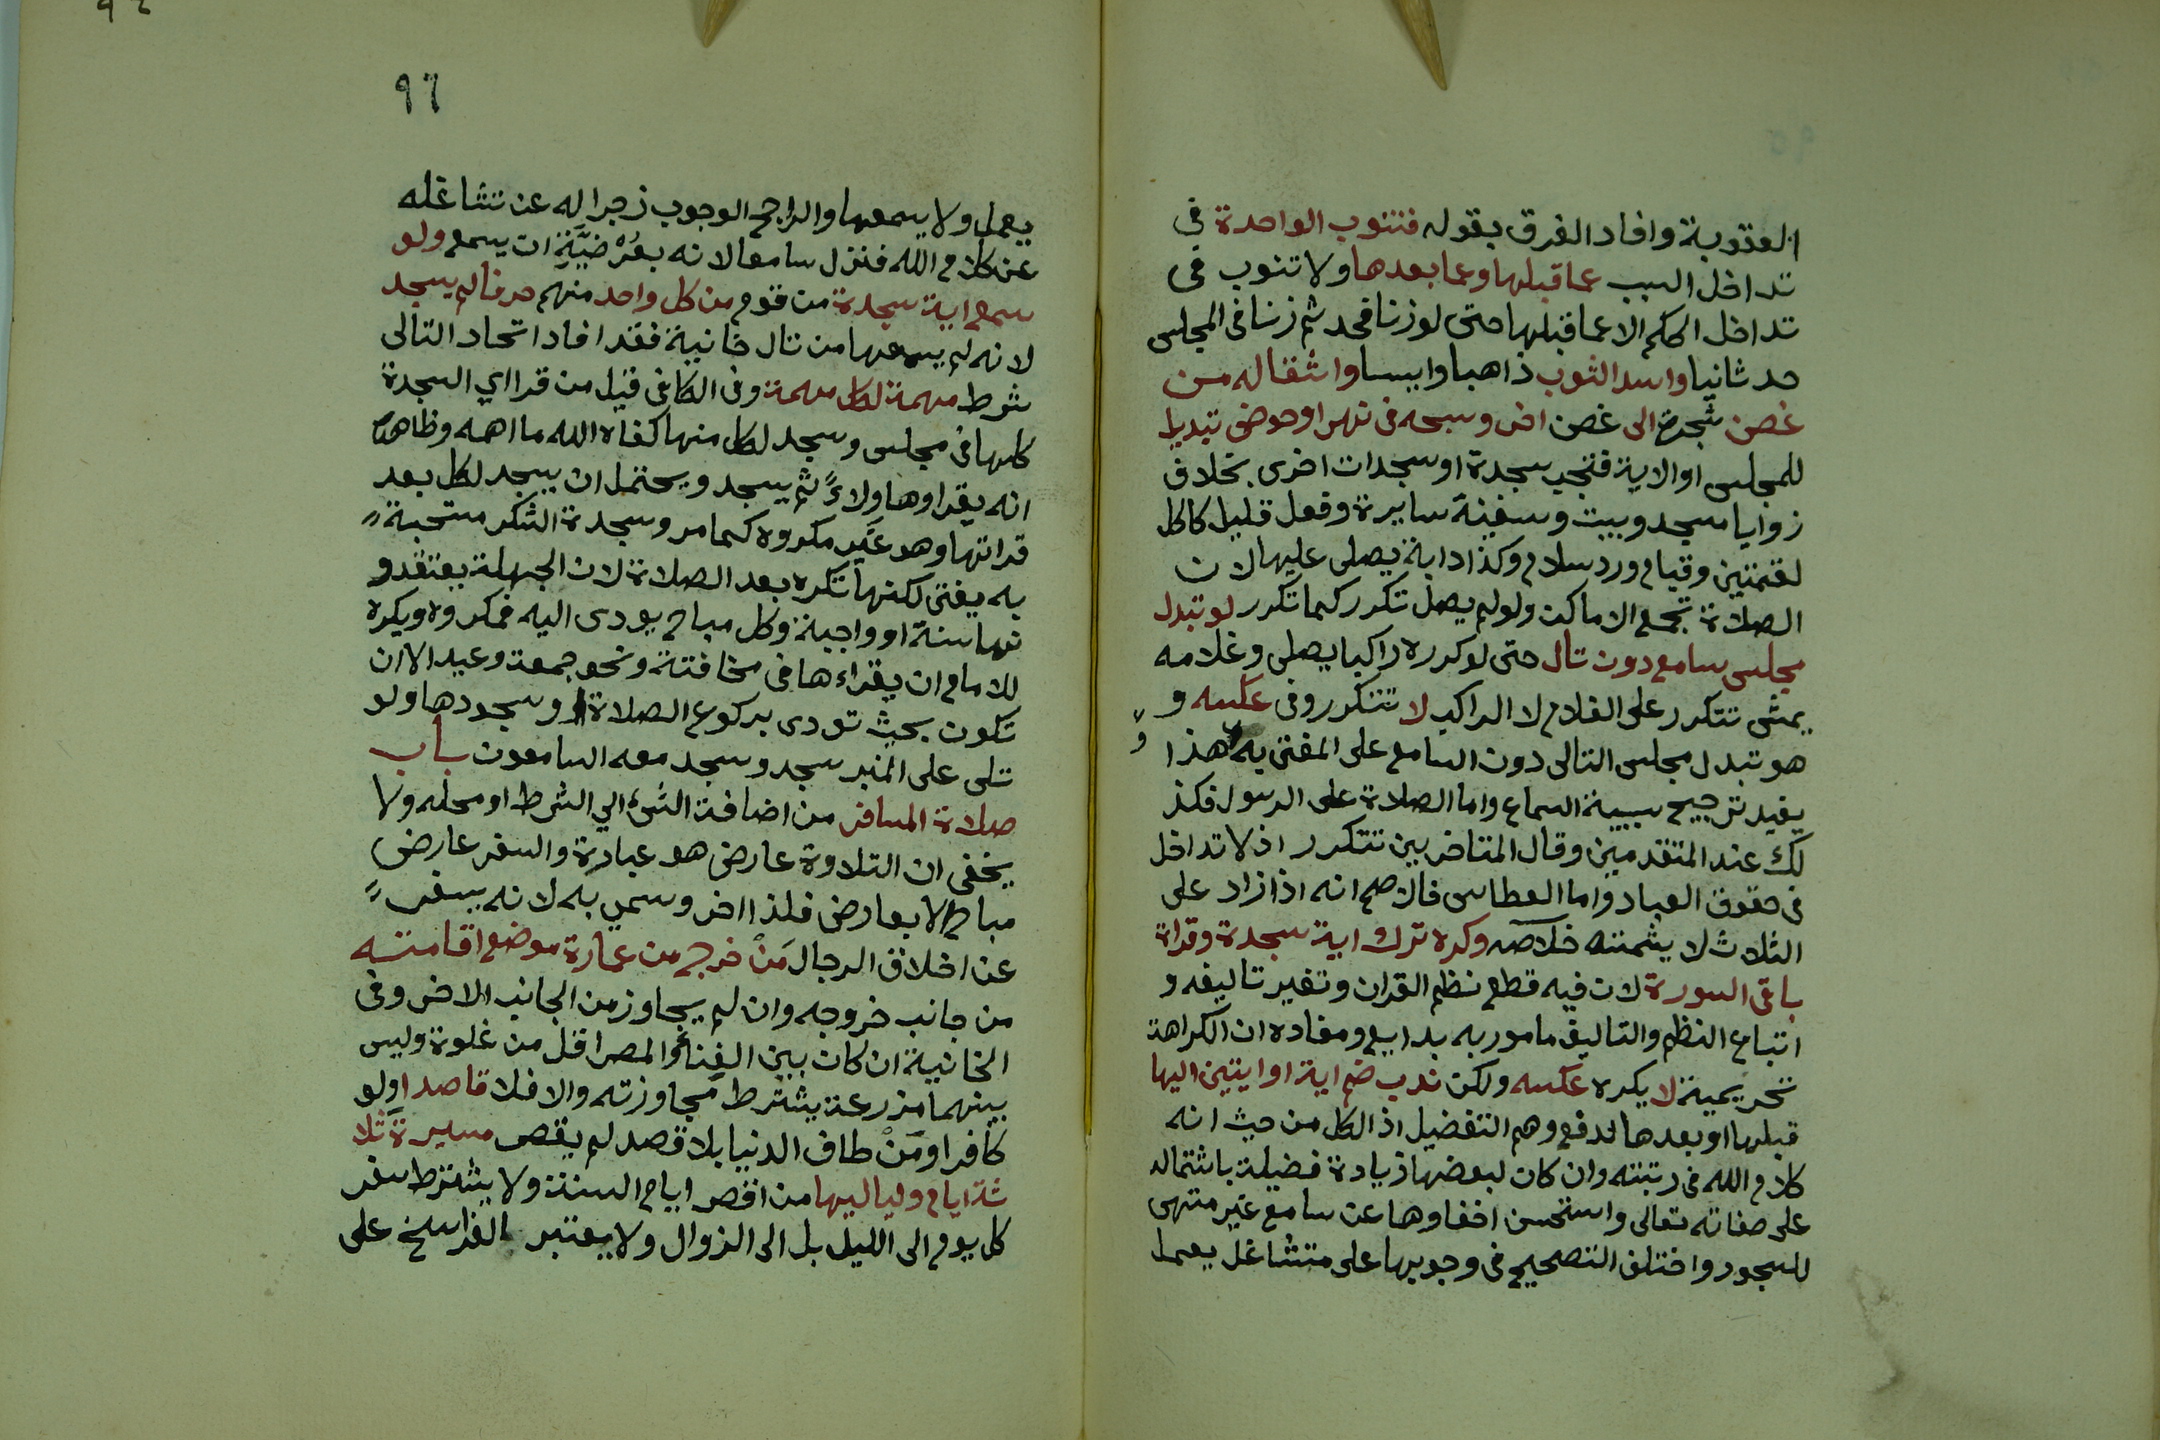 العقوبة وافاد الفرق بقوله فتنوب الواحدة في
تداخل السبب عما قبلها وعما بعدها ولا تنوب في
تداخل الحكم الا عما قبلها حتى لو زنا فحد ثم زنا في المجلس
حد ثانيا واسدا الثوب ذاهبا وايبسا وانتقاله من
غصن شجرة الى غصن اخر وسبحه في نهر او حوض تبديل
للمجلس او الاية فتجب سجدة او سجدات اخرى بخلاف
زوايا مسجد وبيت وسفينة سايرة وفعل قليل كاكل
لقمتين وقيام ورد سلام وكذا دابة يصلى عليها لان
الصلاة تجمع الاماكن ولو لم يصل تكرر كما تكرر لو تبدل
مجلس سامع دون تال حتى لو كررها راكبا يصلى وغلامه
يمشى تتكرر على الغلام لا الراكب لا تتكرر وفي عكسه و
هو تبدل مجلس التالى دون السامع على المفتى به وهذا
يفيد ترجيح سببية السماع واما الصلاة على الرسول فكذ
لك عند المتقدمين وقال المتاخرين تتكرر اذ لا تداخل
في حقوق العباد واما العطاس فالاصح انه اذا زاد على
الثلاث لا يشمته خلاصه وكره ترك اية سجدة وقراة
باقى السورة لان فيه قطع نظم القران وتغير تاليفه و
اتباع النظم والتاليف مامور به بدايع ومفاده ان الكراهة
تحريمية لا يكره عكسه ولكن ندب ضم اية او ايتين اليها
قبلها او بعدها لدفع وهم التفضيل اذ الكل من حيث انه
كلام الله في رتبته وان كان لبعضها زيادة فضيلة باشتماله
على صفاته تعالى واستحسن اخفاوها عن سامع غير متهى
للسجود واختلف التصحيح في وجوبها على متشاغل يعمل
٩٦
يعمل ولا يسمعها والراجح الوجوب زجرا له عن تشاغله
عن كلام الله فنزل سامعا لانه بعُرْضِيَّةِ ان يسمع ولو
سمع اية سجدة من قوم من كل واحد منهم حرفا لم يسجد
لانه لم يسمعها من تال خانية فقد افاد اتحاد التالى
شرط مهمة لكل مهمة وفي الكافى قيل من قرا اي السجدة
كلها في مجلس وسجد لكل منها كفاه الله ما اهمه وظاهره
انه يقراوها ولاءً ثم يسجد ويحتمل ان يسجد لكل بعد
قراتها وهو غير مكروه كما مر وسجدة الشكر مستحبة
به يفتى لكنها تكره بعد الصلاة لان الجهلة يعتقدو
نها سنة او واجبة وكل مباح يودى اليه فمكروه ويكره
للامام ان يقراءها في مخافتة ونحو جمعة وعيد الا ان
تكون بحيث تودى بركوع الصلاة او سجودها ولو
تلى على المنبر سجد وسجد معه السامعون باب
صلاة المسافر من اضافة الشئ الي الشرط او محله ولا
يخفى ان التلاوة عارض هو عبادة والسفر عارض
مباح الا بعارض فلذا اخر وسمي به لانه يسفر
عن اخلاق الرجال مَنْ خرج من عمارة موضع اقامته
من جانب خروجه وان لم يجاوز من الجانب الاخر وفي
الخانية ان كان بين الفنا والمصر اقل من غلوة وليس
بينهما مزرعة يشترط مجاوزته والا فلا قاصدا ولو
كافرا ومَنْ طاف الدنيا بلا قصد لم يقصر مسيرة ثلا
ثة ايام ولياليها من اقصر ايام السنة ولا يشترط سفر
كل يوم الى الليل بل الى الزوال ولا يعتبر الفراسخ على